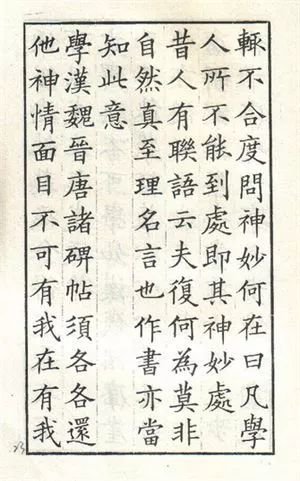 輒不合度問神妙何在曰凡學
人所不能到處即其神妙處
昔人有聯語云夫復何為莫非
自然真至理名言也作書亦當
知此意
學漢魏晉唐諸碑帖須各各還
他神情面目不可有我在有我